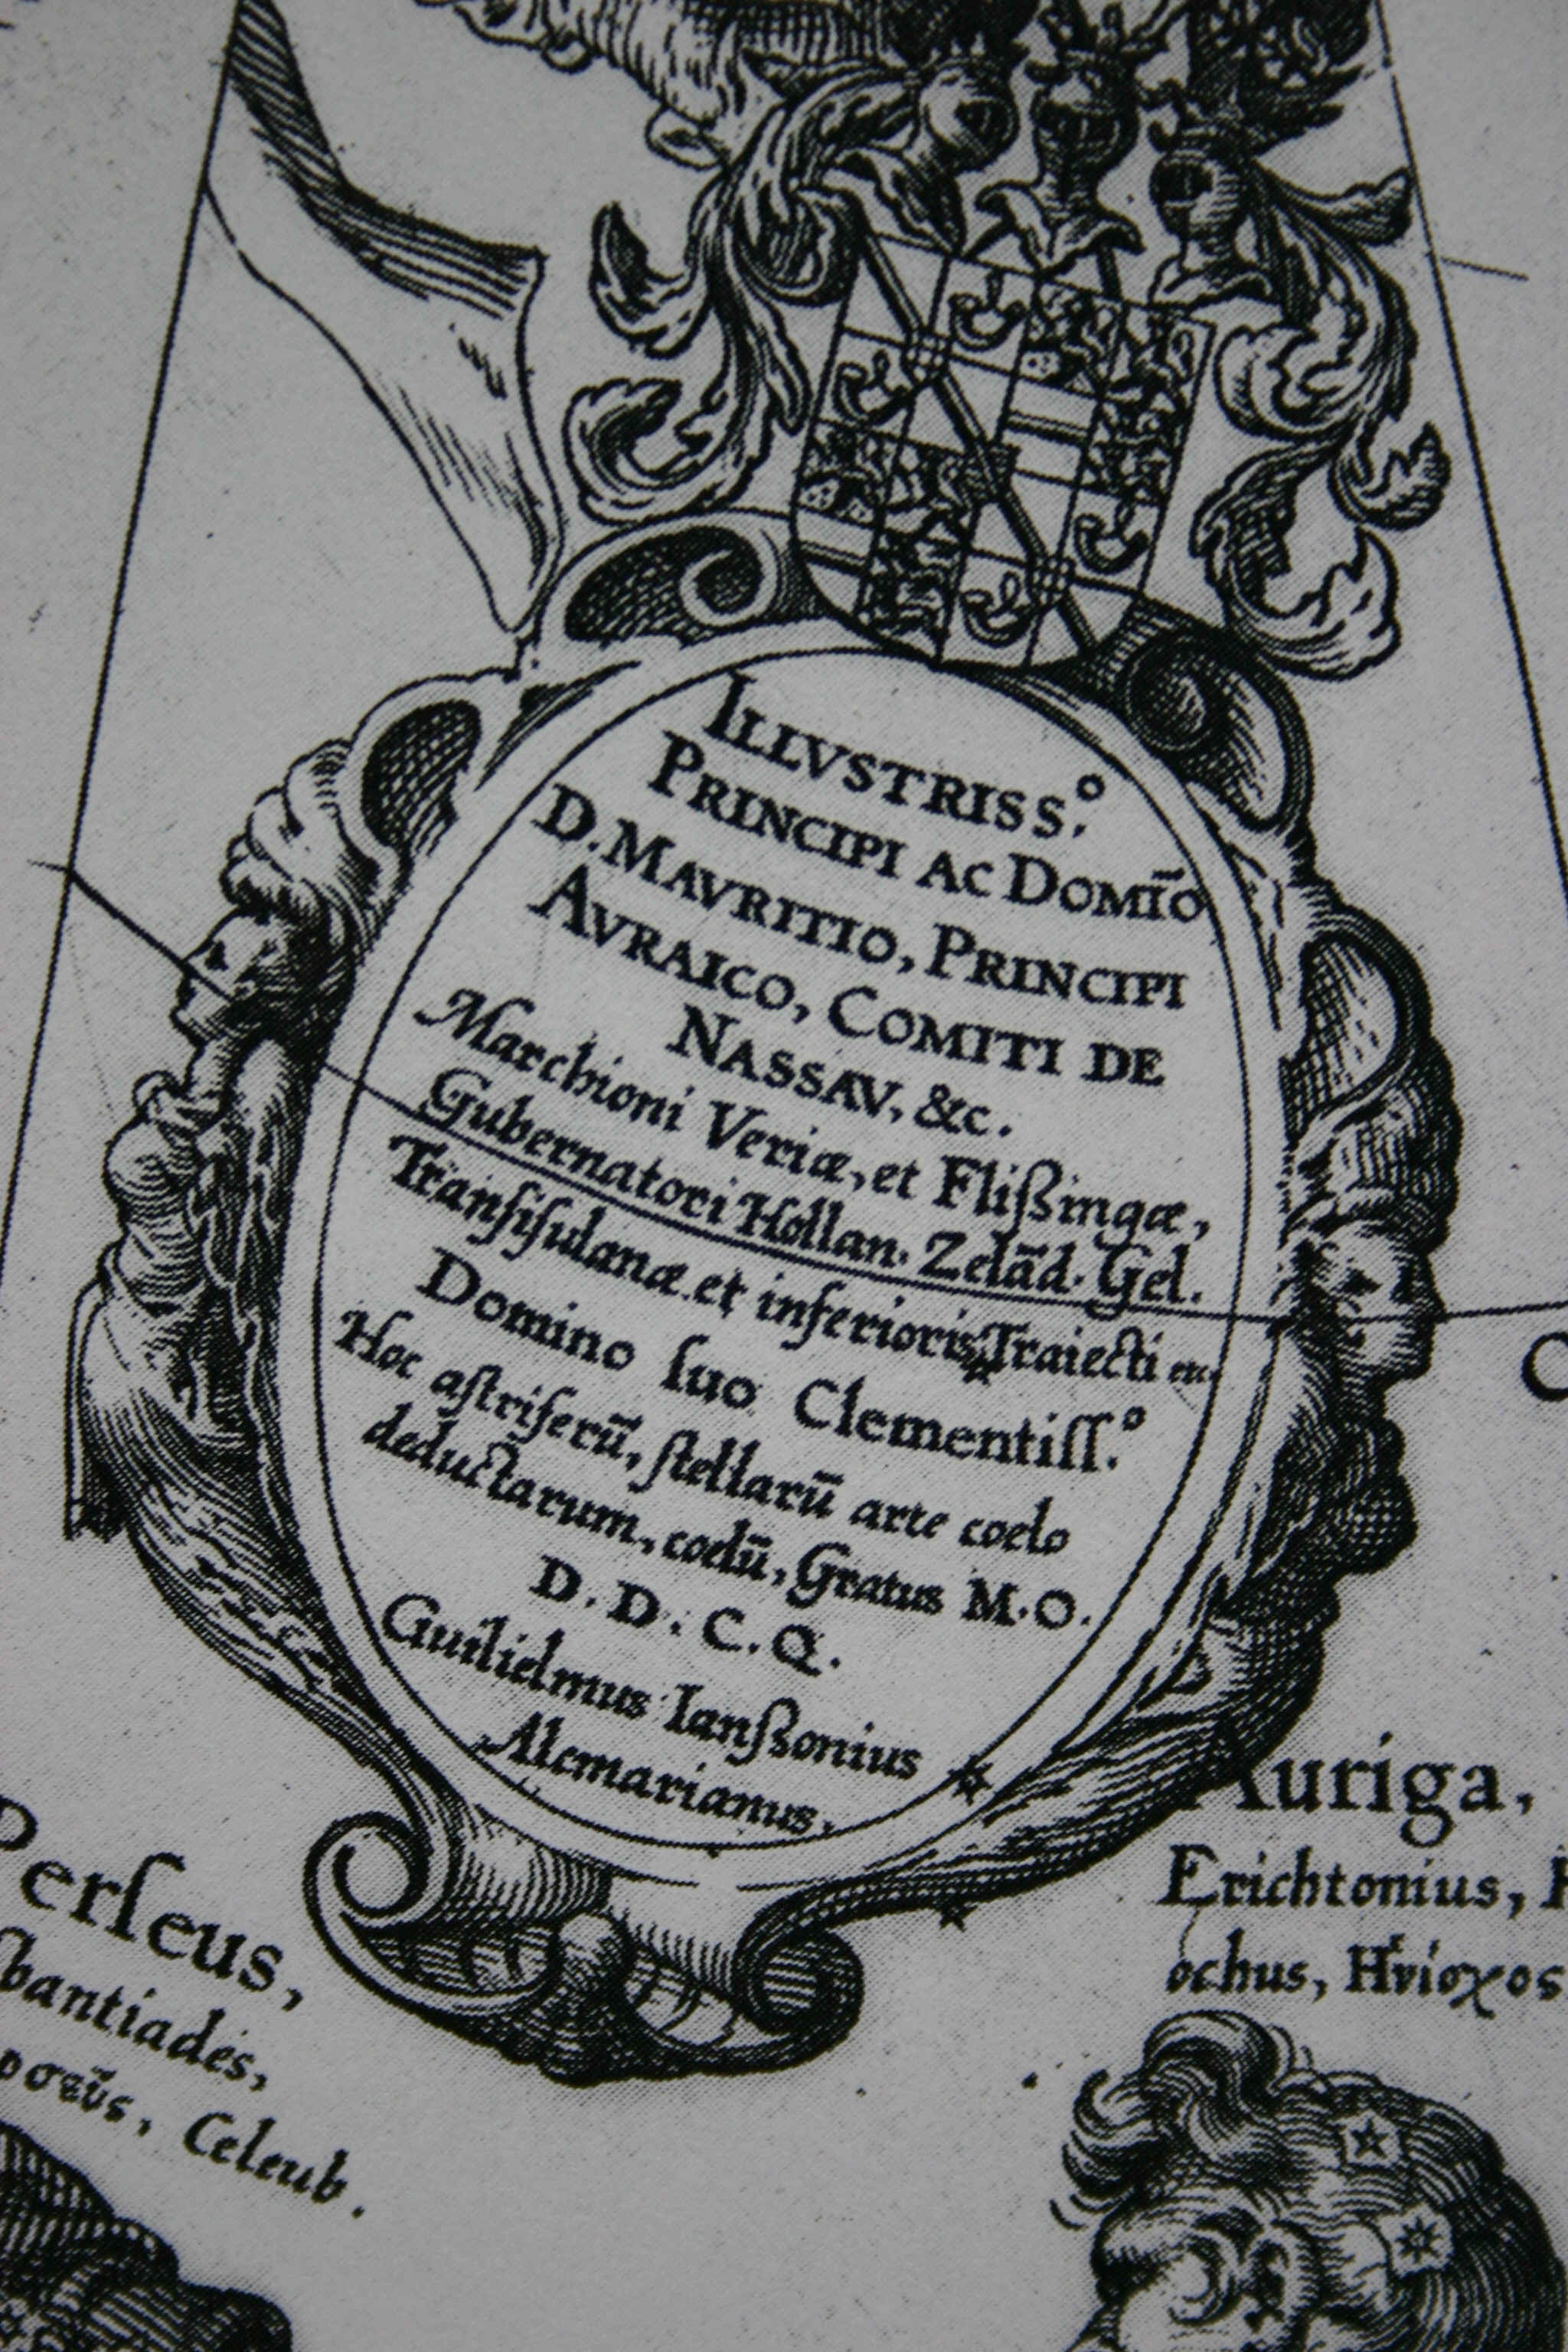 ILLVSTRISS.º
PRINCIPI AC DOMĪO
D. MAVRITIO, PRINCIPI
AVRAICO, COMITI DE
NASSAV, &c.
Marchioni Veriæ, et Flißingæ,
Gubernatori Hollan. Zelād. Gel.
Tranſiſulanæ et inferioris Traiecti etc.
Domino ſuo Clementiſſ.º
Hoc aſtriferū, ſtellarū arte coelo
deductarum, coelū, Gratus M.O.
D. D. C. Q.
Guilielmus Ianſsonius
Alcmarianus.
Perſeus,
bantiades,
Celeub.
Auriga,
Erichtonius,
ochus, Ηνίοχος